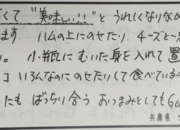 くて "美味しい!!" と うれしくなりなが
ます ハムの上にのせたり、チーズと一
。 小瓶に むいた身を入れて 置
コ いろんなものにのせたりして食べている
たも ばっちり合う おつまみとしてもGo
兵庫県